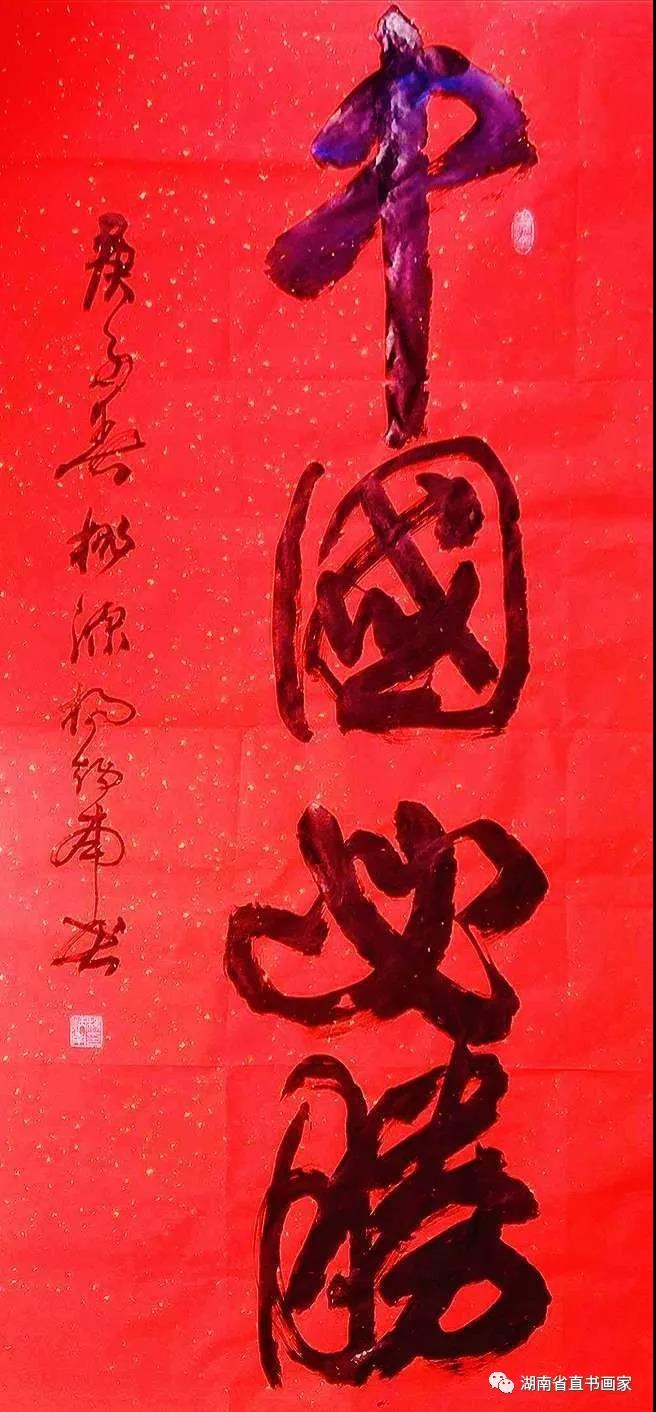 中國必勝
庚子春桃源楊书
湖南省直书画家